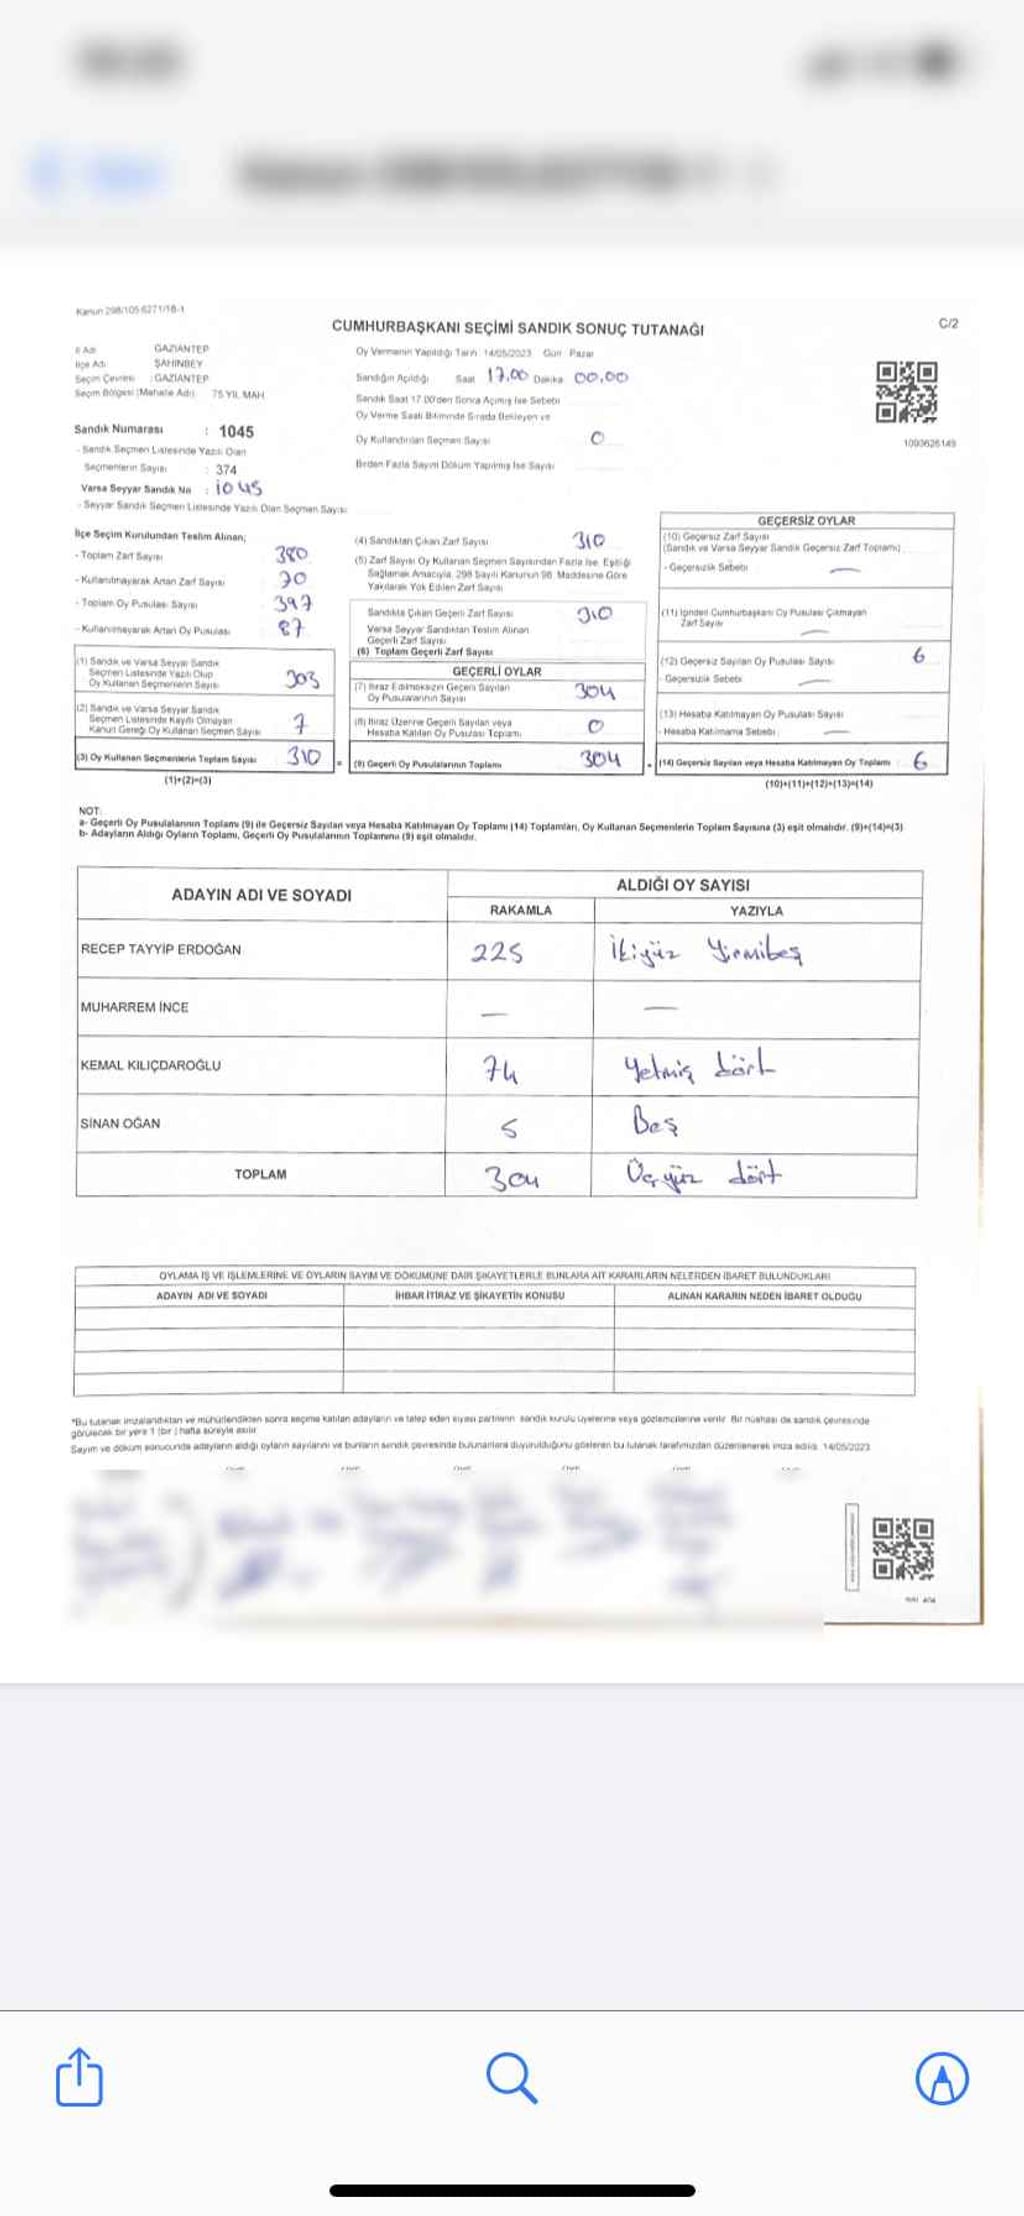 Kanun 298/105 6271/18-1
CUMHURBAŞKANI SEÇİMİ SANDIK SONUÇ TUTANAĞI
C/2
İl Adı GAZİANTEP
İlçe Adı ŞAHİNBEY
Seçim Çevresi : GAZİANTEP
Seçim Bölgesi (Mahalle Adı) 75 YIL MAH
Sandık Numarası : 1045
- Sandık Seçmen Listesinde Yazılı Olan
Seçmenlerin Sayısı : 374
Varsa Seyyar Sandık No : 1045
- Seyyar Sandık Seçmen Listesinde Yazılı Olan Seçmen Sayısı
Oy Vermenin Yapıldığı Tarih 14/05/2023 Gün Pazar
Sandığın Açıldığı Saat 17.00 Dakika 00.00
Sandık Saat 17 00'den Sonra Açılmış İse Sebebi
Oy Verme Saati Bitiminde Sırada Bekleyen ve
Oy Kullandırılan Seçmen Sayısı 0
Birden Fazla Sayım Döküm Yapılmış İse Sayısı
1003626149
İlçe Seçim Kurulundan Teslim Alınan;
- Toplam Zarf Sayısı 380
- Kullanılmayarak Artan Zarf Sayısı 70
- Toplam Oy Pusulası Sayısı 397
- Kullanılmayarak Artan Oy Pusulası 87
(1) Sandık ve Varsa Seyyar Sandık
Seçmen Listesinde Yazılı Olup
Oy Kullanan Seçmenlerin Sayısı 303
(2) Sandık ve Varsa Seyyar Sandık
Seçmen Listesinde Kayıtlı Olmayan
Kanun Gereği Oy Kullanan Seçmen Sayısı 7
(3) Oy Kullanan Seçmenlerin Toplam Sayısı 310
(1)+(2)=(3)
(4) Sandıktan Çıkan Zarf Sayısı 310
(5) Zarf Sayısı Oy Kullanan Seçmen Sayısından Fazla İse, Eşitliği
Sağlamak Amacıyla, 298 Sayılı Kanunun 98. Maddesine Göre
Yakılarak Yok Edilen Zarf Sayısı
Sandıkta Çıkan Geçerli Zarf Sayısı 310
Varsa Seyyar Sandıktan Teslim Alınan
Geçerli Zarf Sayısı
(6) Toplam Geçerli Zarf Sayısı
GEÇERLİ OYLAR
(7) İtiraz Edilmeksizin Geçerli Sayılan
Oy Pusulalarının Sayısı 304
(8) İtiraz Üzerine Geçerli Sayılan veya
Hesaba Katılan Oy Pusulası Toplamı 0
(9) Geçerli Oy Pusulalarının Toplamı 304
GEÇERSİZ OYLAR
(10) Geçersiz Zarf Sayısı
(Sandık ve Varsa Seyyar Sandık Geçersiz Zarf Toplamı)
- Geçersizlik Sebebi —
(11) İçinden Cumhurbaşkanı Oy Pusulası Çıkmayan
Zarf Sayısı —
(12) Geçersiz Sayılan Oy Pusulası Sayısı 6
- Geçersizlik Sebebi —
(13) Hesaba Katılmayan Oy Pusulası Sayısı
- Hesaba Katılmama Sebebi —
(14) Geçersiz Sayılan veya Hesaba Katılmayan Oy Toplamı 6
(10)+(11)+(12)+(13)=(14)
NOT:
a- Geçerli Oy Pusulalarının Toplamı (9) ile Geçersiz Sayılan veya Hesaba Katılmayan Oy Toplamı (14) Toplamları, Oy Kullanan Seçmenlerin Toplam Sayısına (3) eşit olmalıdır. (9)+(14)=(3)
b- Adayların Aldığı Oyların Toplamı, Geçerli Oy Pusulalarının Toplamına (9) eşit olmalıdır.
ADAYIN ADI VE SOYADI
ALDIĞI OY SAYISI
RAKAMLA YAZIYLA
RECEP TAYYİP ERDOĞAN 225 İkiyüz Yirmibeş
MUHARREM İNCE — —
KEMAL KILIÇDAROĞLU 74 Yetmiş dört
SİNAN OĞAN 5 Beş
TOPLAM 304 Üçyüz dört
OYLAMA İŞ VE İŞLEMLERİNE VE OYLARIN SAYIM VE DÖKÜMÜNE DAİR ŞİKAYETLERLE BUNLARA AİT KARARLARIN NELERDEN İBARET BULUNDUKLARI
ADAYIN ADI VE SOYADI İHBAR İTİRAZ VE ŞİKAYETİN KONUSU ALINAN KARARIN NEDEN İBARET OLDUĞU
*Bu tutanak imzalandıktan ve mühürlendikten sonra seçime katılan adayların ve talep eden siyasi partilerin sandık kurulu üyelerine veya gözlemcilerine verilir. Bir nüshası da sandık çevresinde
görülecek bir yere 1 (bir) hafta süreyle asılır
Sayım ve döküm sonucunda adayların aldığı oyların sayılarını ve bunların sandık çevresinde bulunanlara duyurulduğunu gösteren bu tutanak tarafımızdan düzenlenerek imza edildi. 14/05/2023